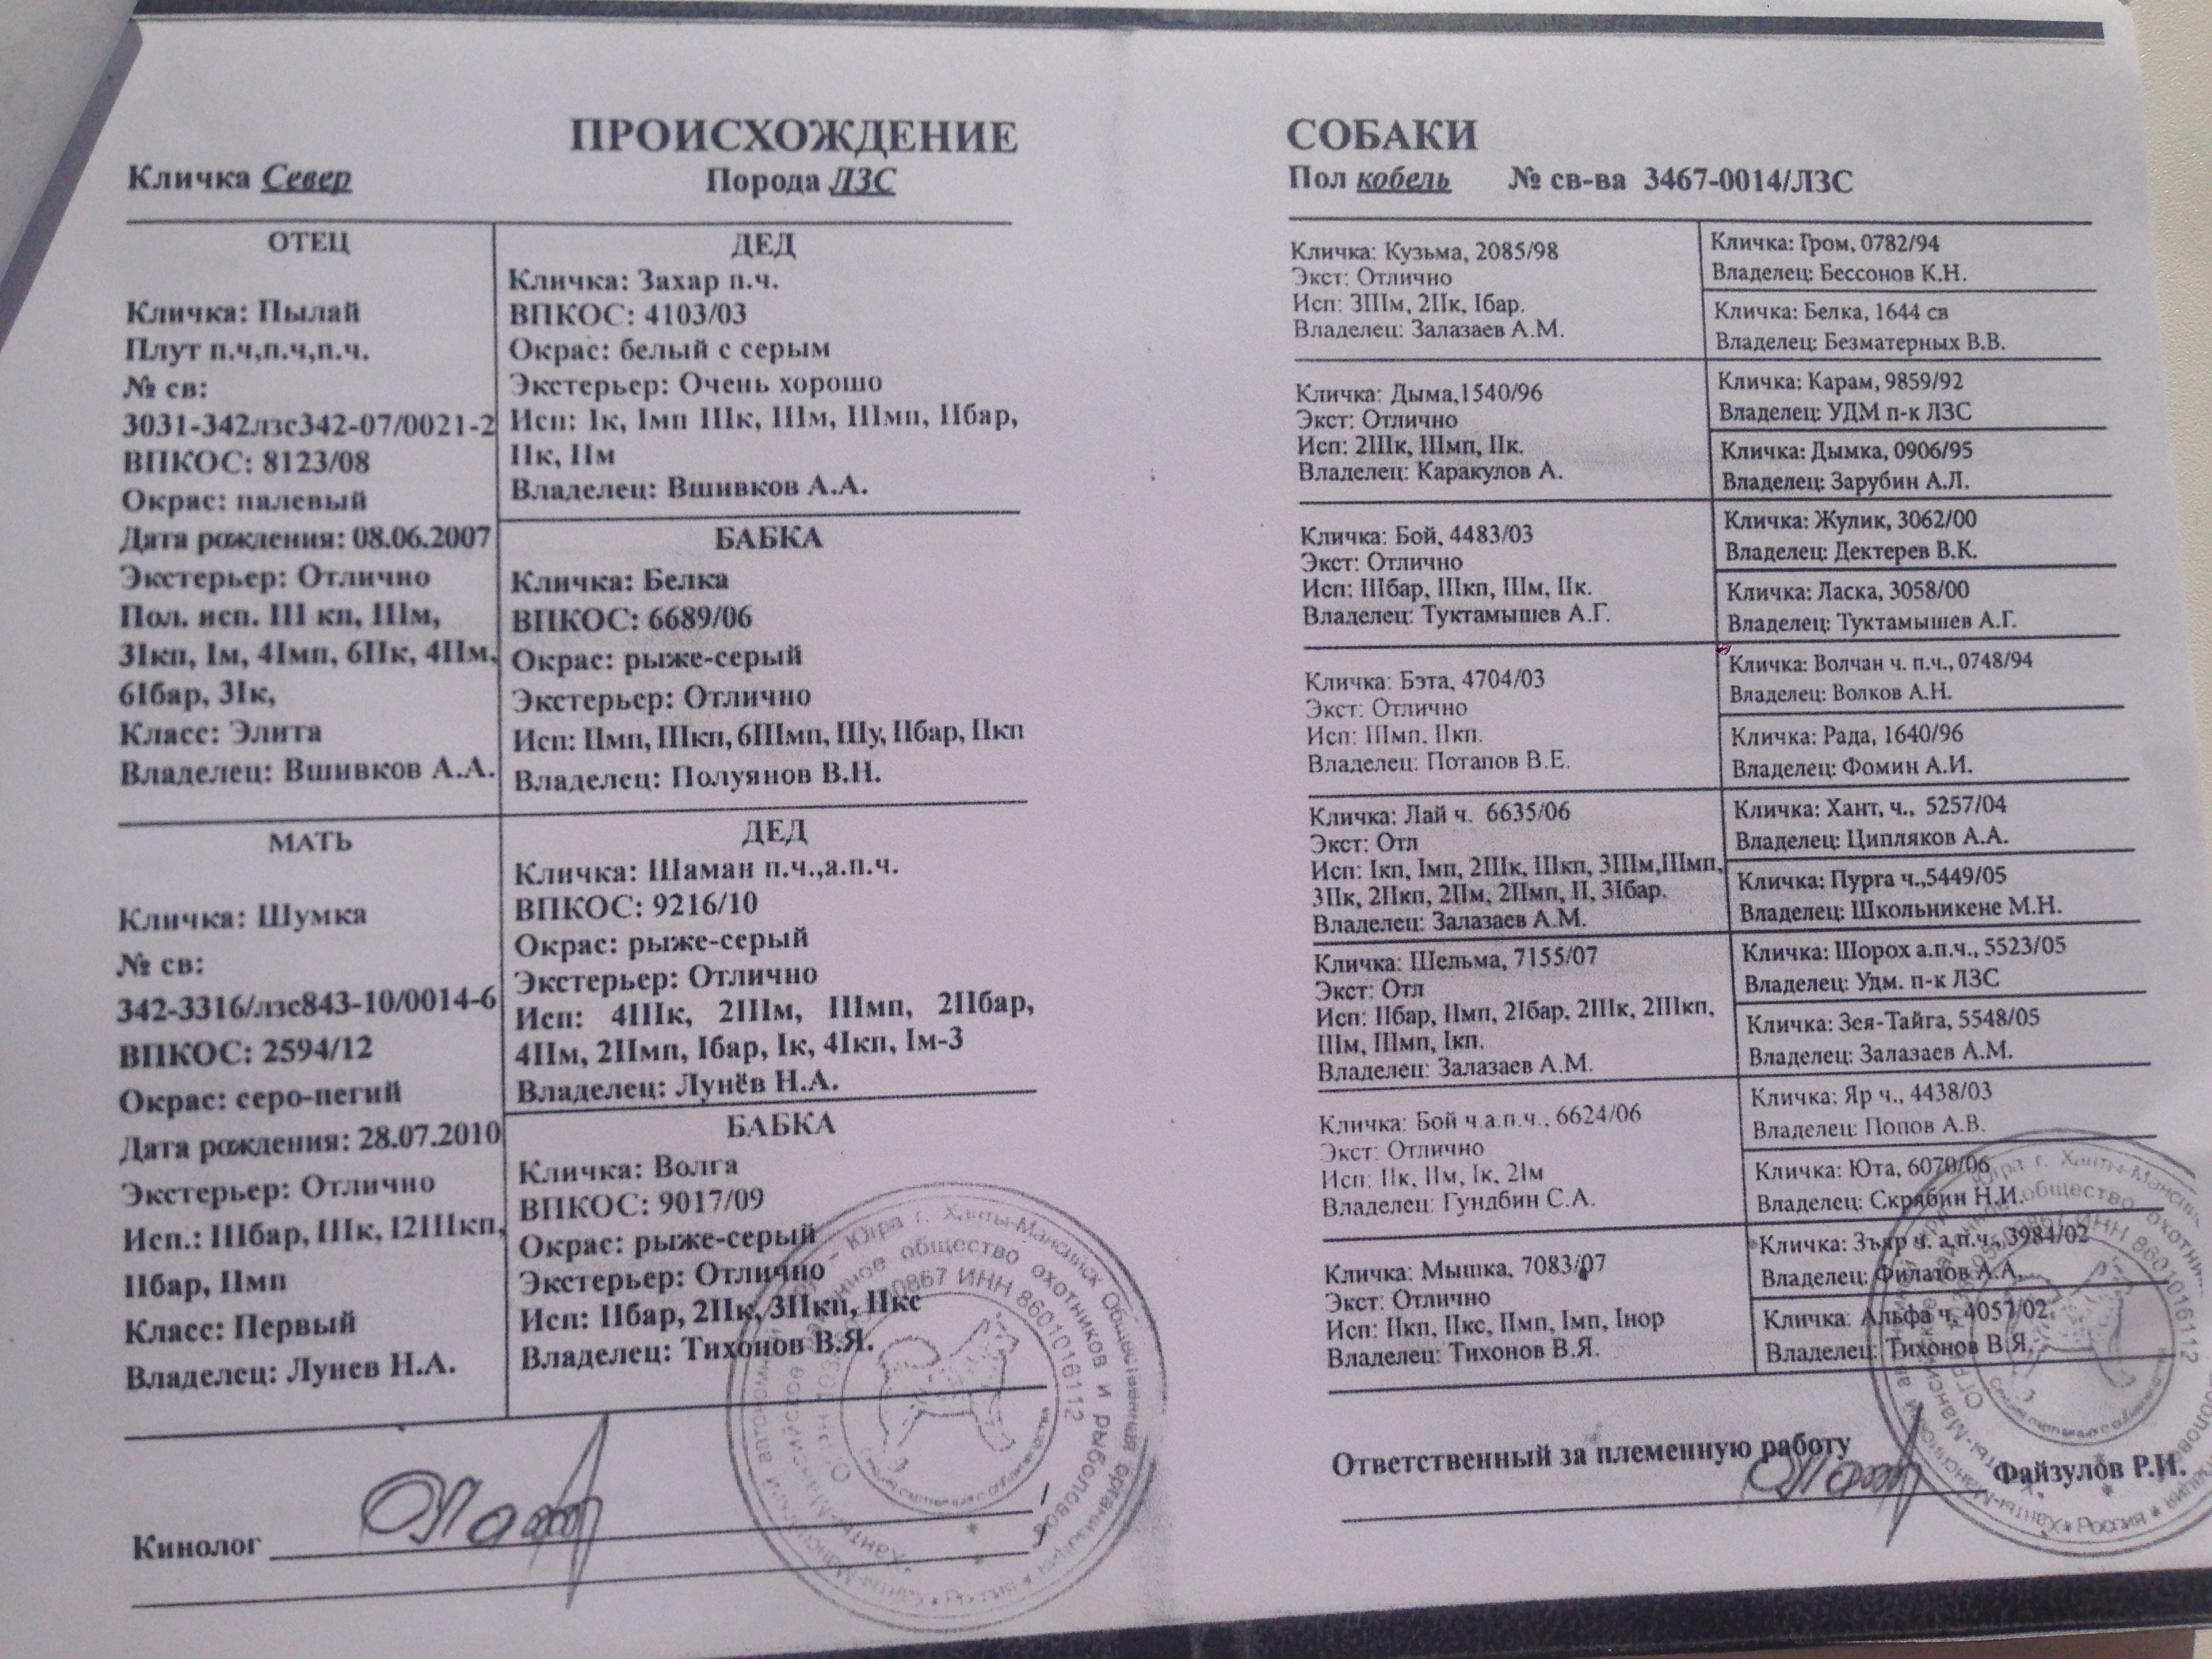 ПРОИСХОЖДЕНИЕ
Кличка Север Порода ЛЗС
ОТЕЦ
Кличка: Пылай
Плут п.ч,п.ч,п.ч.
№ св:
3031-342лзс342-07/0021-2
ВПКОС: 8123/08
Окрас: палевый
Дата рождения: 08.06.2007
Экстерьер: Отлично
Пол. исп. III кп, IIIм,
3Iкп, Iм, 4Iмп, 6IIк, 4IIм,
6Iбар, 3Iк,
Класс: Элита
Владелец: Вшивков А.А.
ДЕД
Кличка: Захар п.ч.
ВПКОС: 4103/03
Окрас: белый с серым
Экстерьер: Очень хорошо
Исп: Iк, Iмп IIIк, IIIм, IIIмп, IIбар,
IIк, IIм
Владелец: Вшивков А.А.
БАБКА
Кличка: Белка
ВПКОС: 6689/06
Окрас: рыже-серый
Экстерьер: Отлично
Исп: IIмп, IIIкп, 6IIIмп, IIIу, IIбар, IIкп
Владелец: Полуянов В.Н.
МАТЬ
Кличка: Шумка
№ св:
342-3316/лзс843-10/0014-6
ВПКОС: 2594/12
Окрас: серо-пегий
Дата рождения: 28.07.2010
Экстерьер: Отлично
Исп.: IIIбар, IIIк, I2IIIкп,
IIбар, IIмп
Класс: Первый
Владелец: Лунев Н.А.
ДЕД
Кличка: Шаман п.ч.,а.п.ч.
ВПКОС: 9216/10
Окрас: рыже-серый
Экстерьер: Отлично
Исп: 4IIIк, 2IIIм, IIIмп, 2IIбар,
4IIм, 2IIмп, Iбар, Iк, 4Iкп, Iм-3
Владелец: Лунёв Н.А.
БАБКА
Кличка: Волга
ВПКОС: 9017/09
Окрас: рыже-серый
Экстерьер: Отлично
Исп: IIбар, 2IIк, 3IIкп, IIкс
Владелец: Тихонов В.Я.
Кинолог
СОБАКИ
Пол кобель № св-ва 3467-0014/ЛЗС
Кличка: Кузьма, 2085/98
Экст: Отлично
Исп: 3IIIм, 2IIк, Iбар.
Владелец: Залазаев А.М.
Кличка: Гром, 0782/94
Владелец: Бессонов К.Н.
Кличка: Белка, 1644 св
Владелец: Безматерных В.В.
Кличка: Дыма,1540/96
Экст: Отлично
Исп: 2IIIк, IIIмп, IIк.
Владелец: Каракулов А.
Кличка: Карам, 9859/92
Владелец: УДМ п-к ЛЗС
Кличка: Дымка, 0906/95
Владелец: Зарубин А.Л.
Кличка: Бой, 4483/03
Экст: Отлично
Исп: IIIбар, IIIкп, IIIм, IIк.
Владелец: Туктамышев А.Г.
Кличка: Жулик, 3062/00
Владелец: Дектерев В.К.
Кличка: Ласка, 3058/00
Владелец: Туктамышев А.Г.
Кличка: Бэта, 4704/03
Экст: Отлично
Исп: IIIмп, IIкп.
Владелец: Потапов В.Е.
Кличка: Волчан ч. п.ч., 0748/94
Владелец: Волков А.Н.
Кличка: Рада, 1640/96
Владелец: Фомин А.И.
Кличка: Лай ч. 6635/06
Экст: Отл
Исп: Iкп, Iмп, 2IIIк, IIIкп, 3IIIм,IIIмп,
3IIк, 2IIкп, 2IIм, 2IIмп, II, 3Iбар.
Владелец: Залазаев А.М.
Кличка: Хант, ч., 5257/04
Владелец: Ципляков А.А.
Кличка: Пурга ч.,5449/05
Владелец: Школьникене М.Н.
Кличка: Шельма, 7155/07
Экст: Отл
Исп: IIбар, IIмп, 2Iбар, 2IIIк, 2IIIкп,
IIIм, IIIмп, Iкп.
Владелец: Залазаев А.М.
Кличка: Шорох а.п.ч., 5523/05
Владелец: Удм. п-к ЛЗС
Кличка: Зея-Тайга, 5548/05
Владелец: Залазаев А.М.
Кличка: Бой ч.а.п.ч., 6624/06
Экст: Отлично
Исп: IIк, IIм, Iк, 2Iм
Владелец: Гундбин С.А.
Кличка: Яр ч., 4438/03
Владелец: Попов А.В.
Кличка: Юта, 6070/06
Владелец: Скрябин Н.И.
Кличка: Мышка, 7083/07
Экст: Отлично
Исп: IIкп, IIкс, IIмп, Iмп, Iнор
Владелец: Тихонов В.Я.
Кличка: Зъяр ч. а.п.ч., 3984/02
Владелец: Филатов А.А.
Кличка: Альфа ч, 4057/02
Владелец: Тихонов В.Я.
Ответственный за племенную работу Файзулов Р.И.
Югра г. Ханты-Мансийск Общественная организация
общество охотников и рыболовов
ИНН 8601016112
Россия